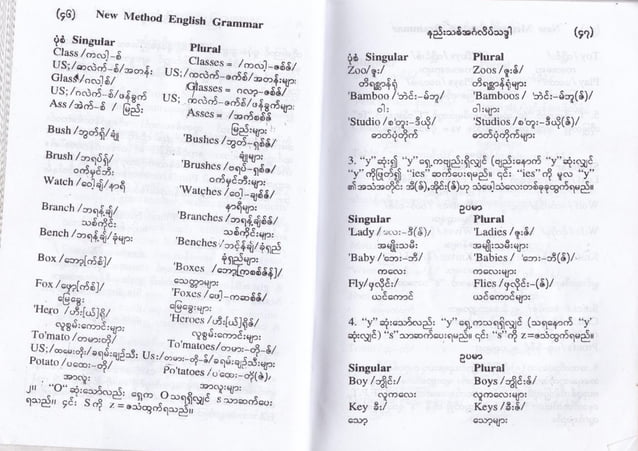 (၄၆) New Method English Grammar
ပုံစံ Singular Plural
Class /ကလ(ါ)-စ် Classes = /ကလ(ါ)-ဇစ်ဖ်/
US;/ခလဲက်-စ်/အတန်း US;/ကလဲက်-ခက်စ်/အတန်းများ
Glass/ဂလ(ါ)စ်/ Glasses= ဂလာ့-ဇစ်ဖ်/
US;/ဂလဲက်-စ်/ဖန်ခွက် US; ဂလဲက်-ခက်စ်/ဖန်ခွက်များ
Ass /အဲက်-စ် / မြည်း Asses = /အက်စစ်ဖ်
မြည်းများ
Bush /ဘွတ်ရှ်/ချုံ 'Bushes /ဘွတ်-ရှစ်ဖ်/
ချုံများ
Brush /ဘရပ်ရှ်/ 'Brushes /ဗရပ်-ရှစ်ဖ်/
ဝက်မှင်ဘီး ဝက်မှင်ဘီးများ
Watch /ဝေါ့ချ်/နာရီ 'Watches /ဝေါ့-ချစ်ဖ်/
နာရီများ
Branch /ဘရန့်ချ်/ 'Branches /ဘရန့်ချစ်ဖ်/
သစ်ကိုင်း သစ်ကိုင်းများ
Bench /ဘန့်ချ်/ခုံများ 'Benches /ဘင့်န်ချ်/ခုံရှည်
ခုံရှည်များ
Box /ဘော့[က်စ်]/ 'Boxes /ဘော့[ကစစ်ဖန်]/
သေတ္တာများ
Fox /ဖော့[က်စ်]/ 'Foxes /ဖေါ့-ကဆစ်ဖ်/
မြေခွေး မြေခွေးများ
'Hero /ဟီး[ယ်]ရို/ 'Heroes /ဟီး[ယ်]ရိုဖ်/
လူစွမ်းကောင်းများ လူစွမ်းကောင်းများ
To'mato /တမား-တို/ To'matoes/တမား-တို-ဖ်/
US;/ထမေးတိုး/ခရမ်းချဉ်သီး US:/တမား-တို-ဖ်/ခရမ်းချဉ်သီးများ
Potato /ပထေး-တို/ Po'tatoes /ပထေး-တို(ဖ်)၊
အာလူး အာလူးများ
၂။ "O" ဆုံးသော်လည်း ရှေ့က O သရရှိလျှင် s သာဆက်ပေး
ရသည်။ ၄င်း S ကို z = ဇသံထွက်ရသည်။
နည်းသစ်အင်္ဂလိပ်သဒ္ဒါ (၄၇)
ပုံစံ Singular Plural
Zoo/ဇူး/ Zoos /ဇူးဖ်/
တိရစ္ဆာန်ရုံ တိရစ္ဆာန်ရုံများ
'Bamboo /ဘဲင်း-မ်ဘူ/ 'Bamboos / 'ဘဲင်း-မ်ဘူ(ဖ်)/
ဝါး ဝါးများ
'Studio /စ'တူး-ဒီယို/ 'Studios /စ'တူး-ဒီယိုဖ်/
ဓာတ်ပုံတိုက် ဓာတ်ပုံတိုက်များ
3. "y"ဆုံး၍ "y" ရှေ့ကဗျည်းရှိလျှင် (ဗျည်းနောက် "y"ဆုံးလျှင်
"y"ကိုဖြတ်၍ "ies"ဆက်ပေးရမည်။ ၎င်း "ies" ကို မူလ "y"
၏အသံအတိုင်း အိ(ဖ်),အိုင်း(ဖ်)ဟု သံပေါ်သံလေးတစ်ခုခုထွက်ရမည်။
ဥပမာ
Singular Plural
'Lady /လေး-ဒီ(ဖ်)/ 'Ladies /ဇူးဖ်/
အမျိုးသမီး အမျိုးသမီးများ
'Baby /'ဘေး-ဘီ/ 'Babies / 'ဘေး-ဘီ(ဖ်)/
ကလေး ကလေးများ
Fly/ဖ္လိုင်း/ Flies /ဖ္လိုင်း-(ဖ်)/
ယင်ကောင် ယင်ကောင်များ
4. "y" ဆုံးသော်လည်း "y" ရှေ့ကသရရှိလျှင် (သရနောက် "y"
ဆုံးလျှင်) "s"သာဆက်ပေးရမည်။ ၎င်း "s"ကို z=ဇသံထွက်ရမည်။
ဥပမာ
Singular Plural
Boy /ဘွိုင်း/ Boys /ဘွိုင်းဖ်/
လူကလေး လူကလေးများ
Key ခီး/ Keys /ခီးဖ်/
သော့ သော့များ